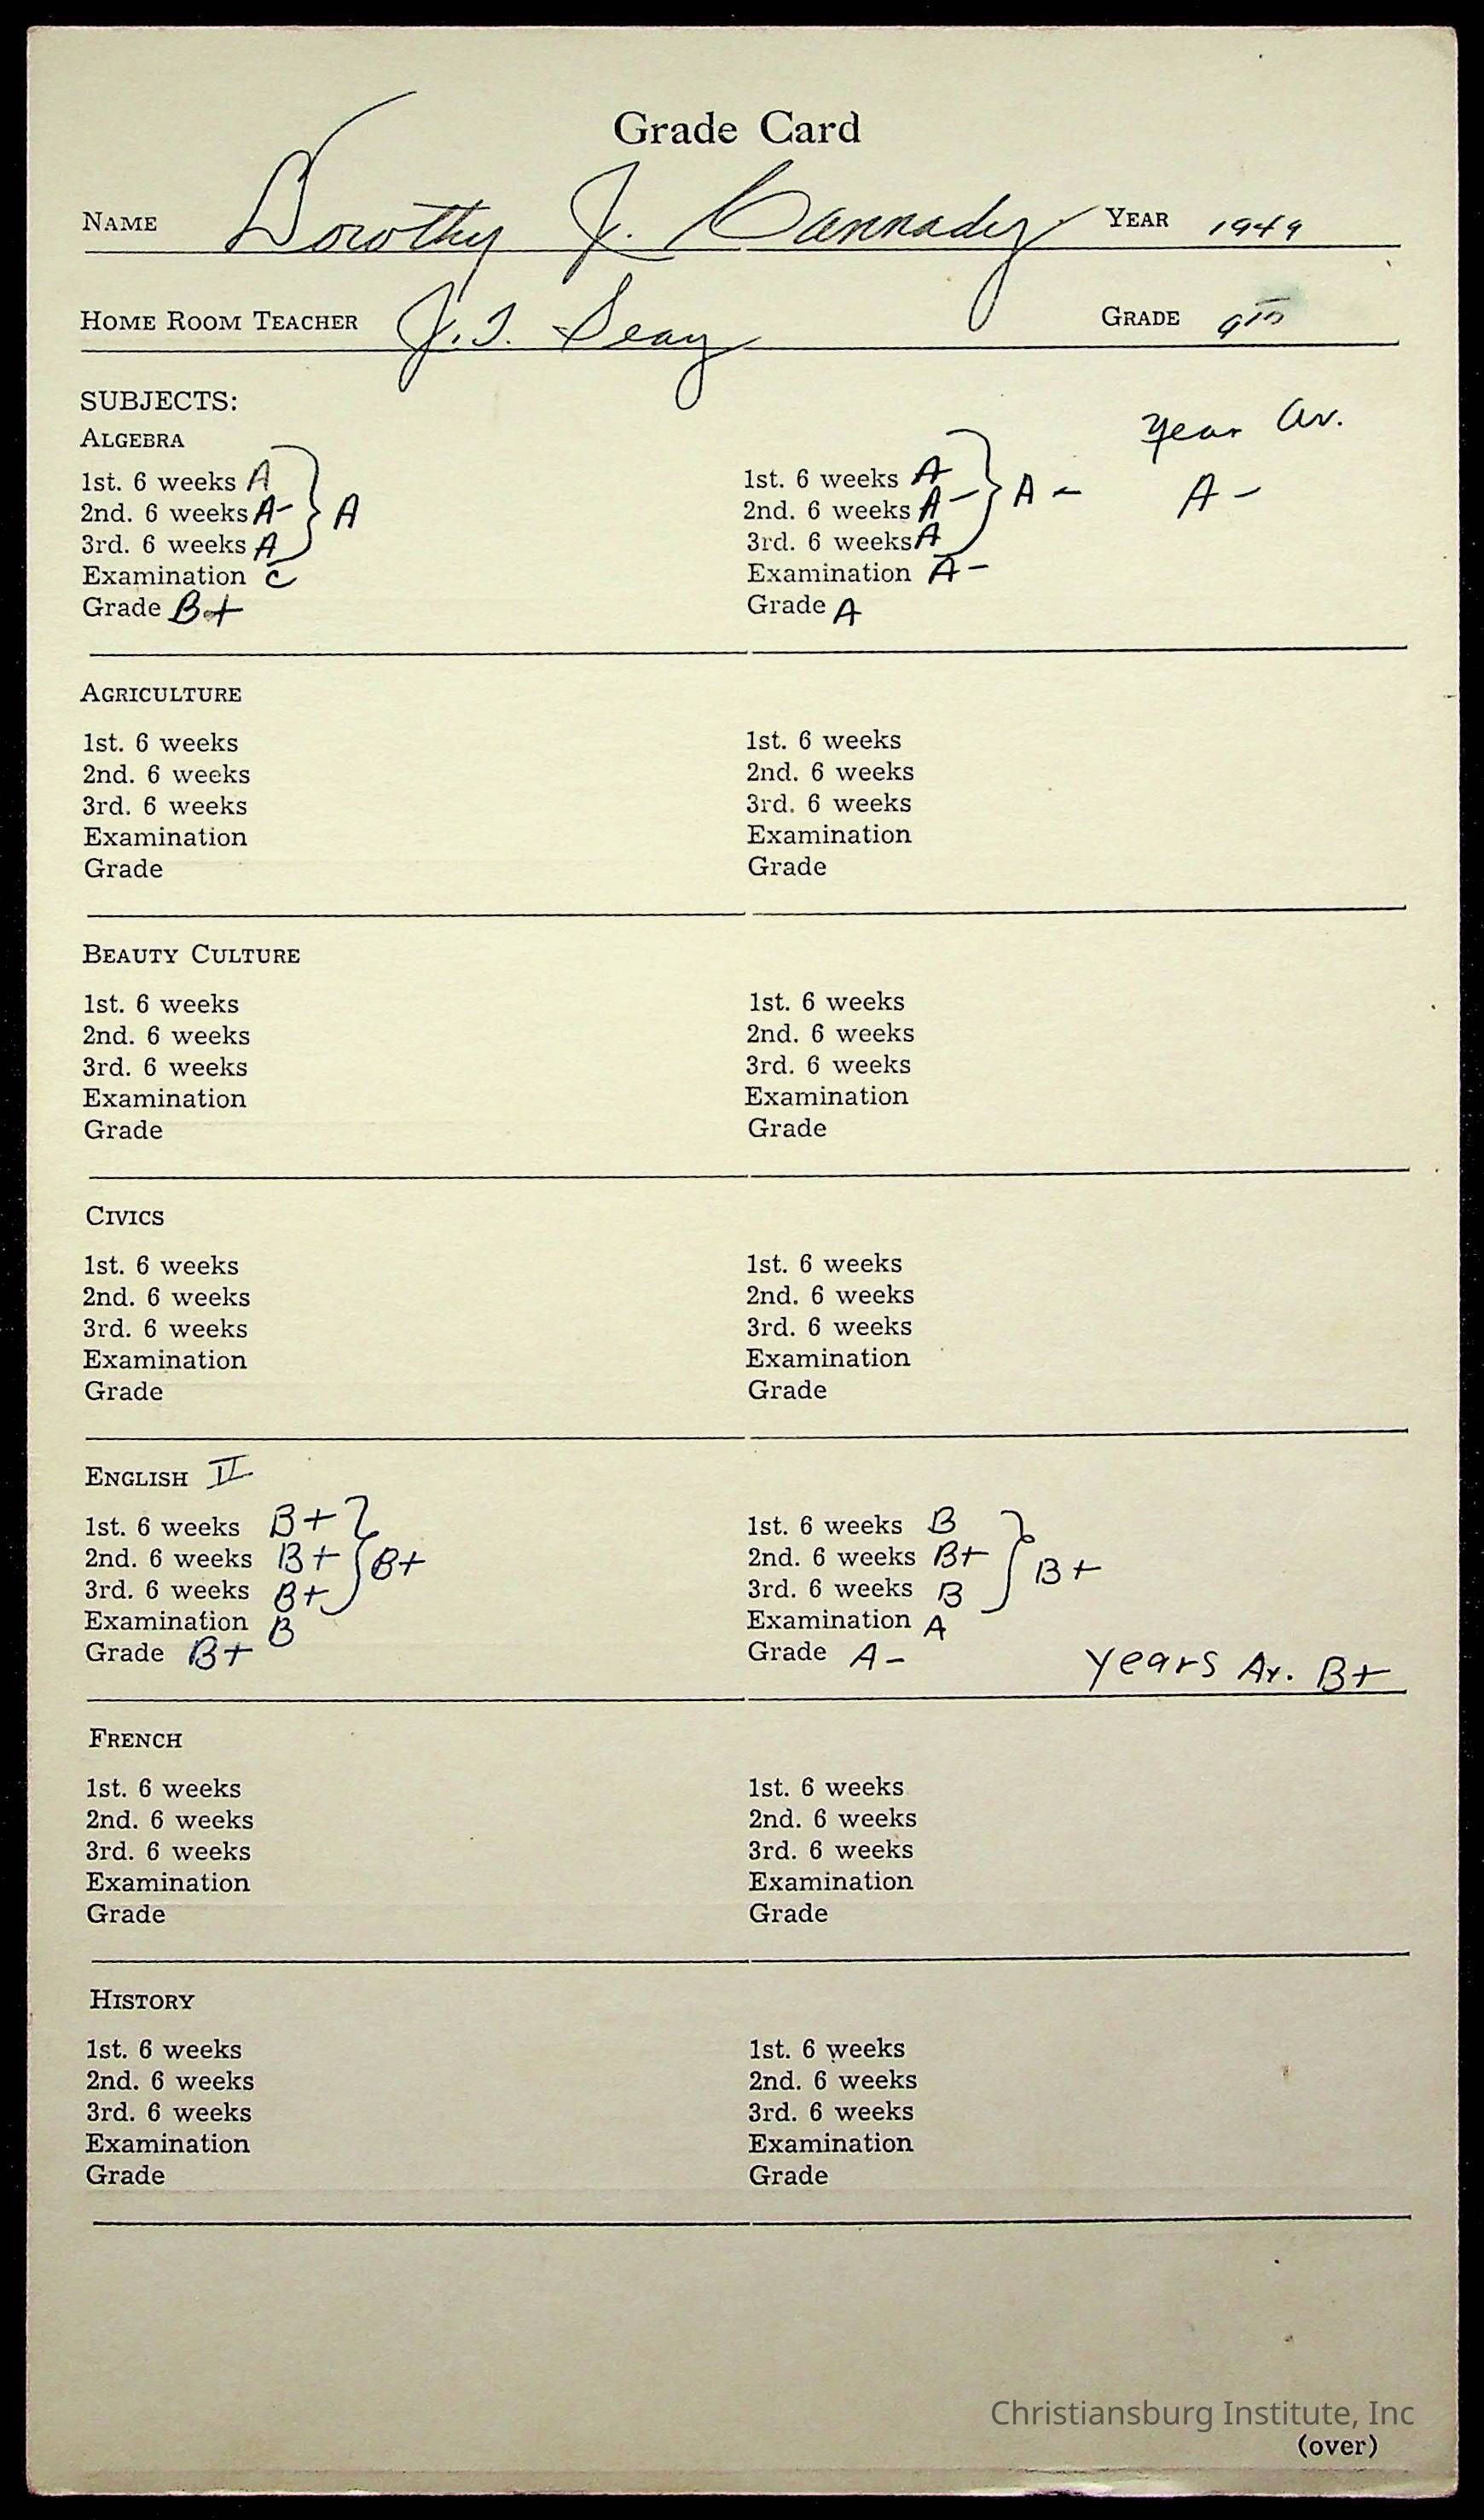 Grade Card
NAME Dorothy J. Cannady YEAR 1949
HOME ROOM TEACHER J.T. Seay GRADE 9th
SUBJECTS:
year av.
ALGEBRA
1st. 6 weeks A 1st. 6 weeks A
2nd. 6 weeks A- } A 2nd. 6 weeks A- } A- A-
3rd. 6 weeks A 3rd. 6 weeks A
Examination C Examination A-
Grade B+ Grade A
AGRICULTURE
1st. 6 weeks 1st. 6 weeks
2nd. 6 weeks 2nd. 6 weeks
3rd. 6 weeks 3rd. 6 weeks
Examination Examination
Grade Grade
BEAUTY CULTURE
1st. 6 weeks 1st. 6 weeks
2nd. 6 weeks 2nd. 6 weeks
3rd. 6 weeks 3rd. 6 weeks
Examination Examination
Grade Grade
CIVICS
1st. 6 weeks 1st. 6 weeks
2nd. 6 weeks 2nd. 6 weeks
3rd. 6 weeks 3rd. 6 weeks
Examination Examination
Grade Grade
ENGLISH II
1st. 6 weeks B+ 1st. 6 weeks B
2nd. 6 weeks B+ } B+ 2nd. 6 weeks B+ } B+
3rd. 6 weeks B+ 3rd. 6 weeks B
Examination B Examination A
Grade B+ Grade A- years Av. B+
FRENCH
1st. 6 weeks 1st. 6 weeks
2nd. 6 weeks 2nd. 6 weeks
3rd. 6 weeks 3rd. 6 weeks
Examination Examination
Grade Grade
HISTORY
1st. 6 weeks 1st. 6 weeks
2nd. 6 weeks 2nd. 6 weeks
3rd. 6 weeks 3rd. 6 weeks
Examination Examination
Grade Grade
Christiansburg Institute, Inc
(over)